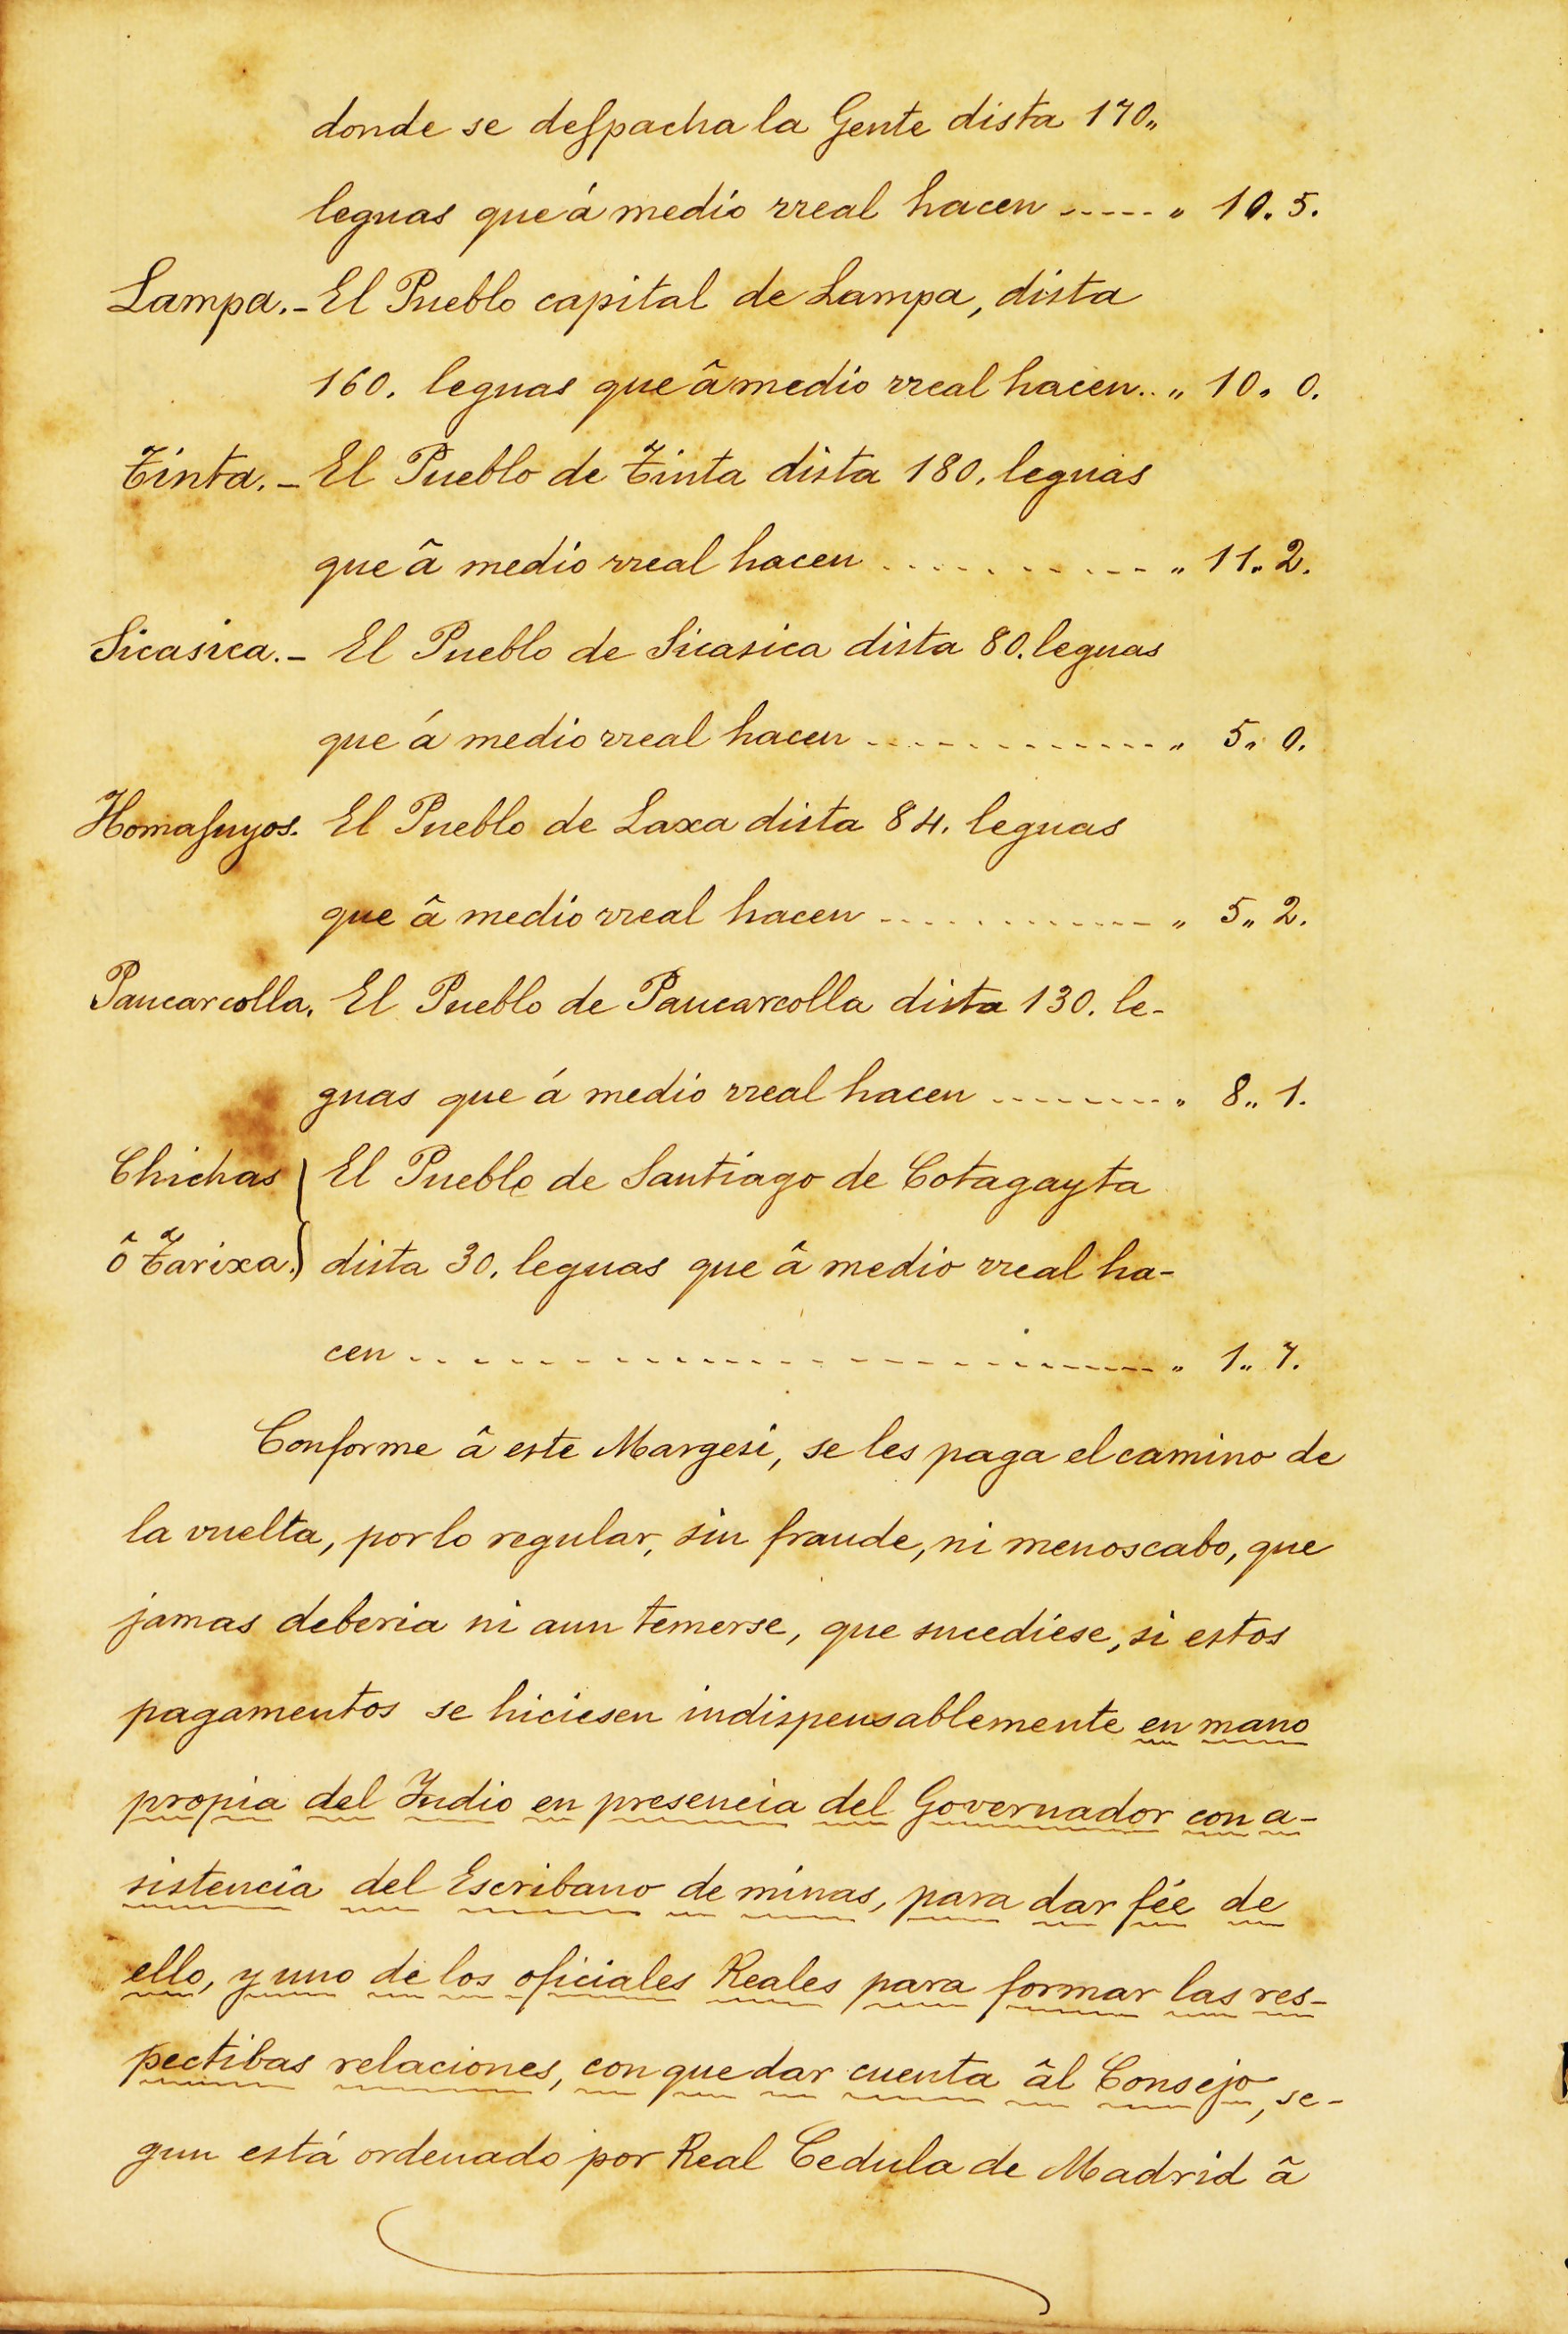 donde se despacha la Gente dista 170„
leguas que á medio rreal hacen ..... „ 10. 5.
Lampa.- El Pueblo capital de Lampa, dista
160. leguas que â medio rreal hacen.. „ 10. 0.
Tinta. - El Pueblo de Tinta dista 180. leguas
que â medio rreal hacen ............ „ 11. 2.
Sicasica.- El Pueblo de Sicasica dista 80. leguas
que á medio rreal hacen ............. „ 5„ 0.
Homasuyos. El Pueblo de Laxa dista 84. leguas
que â medio rreal hacen ............ „ 5„ 2.
Paucarcolla. El Pueblo de Paucarcolla dista 130. le-
guas que á medio rreal hacen ......... „ 8„ 1.
Chichas El Pueblo de Santiago de Cotagayta
ô Tarixa. dista 30. leguas que â medio rreal ha-
cen .......................... „ 1„ 7.
Conforme â este Margesi, se les paga el camino de
la vuelta, por lo regular, sin fraude, ni menoscabo, que
jamas deberia ni aun temerse, que sucediése, si estos
pagamentos se hiciesen indispensablemente en mano
propia del Indio en presencia del Governador con a-
sistencia del Escribano de minas, para dar fée de
ello, y uno de los oficiales Reales para formar las res-
pectibas relaciones, con que dar cuenta âl Consejo, se-
gun está ordenado por Real Cedula de Madrid â